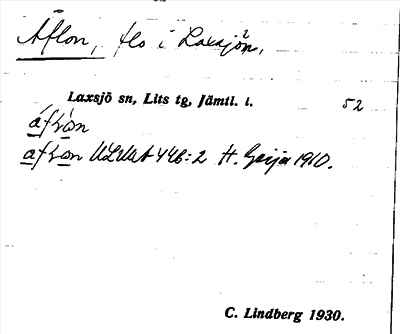 Åflon, flo i Laxsjön,
Laxsjö sn, Lits tg, Jämtl. l.
52
åfłon
åfłon ULMA 446:2 H. Geijer 1910.
C. Lindberg 1930.